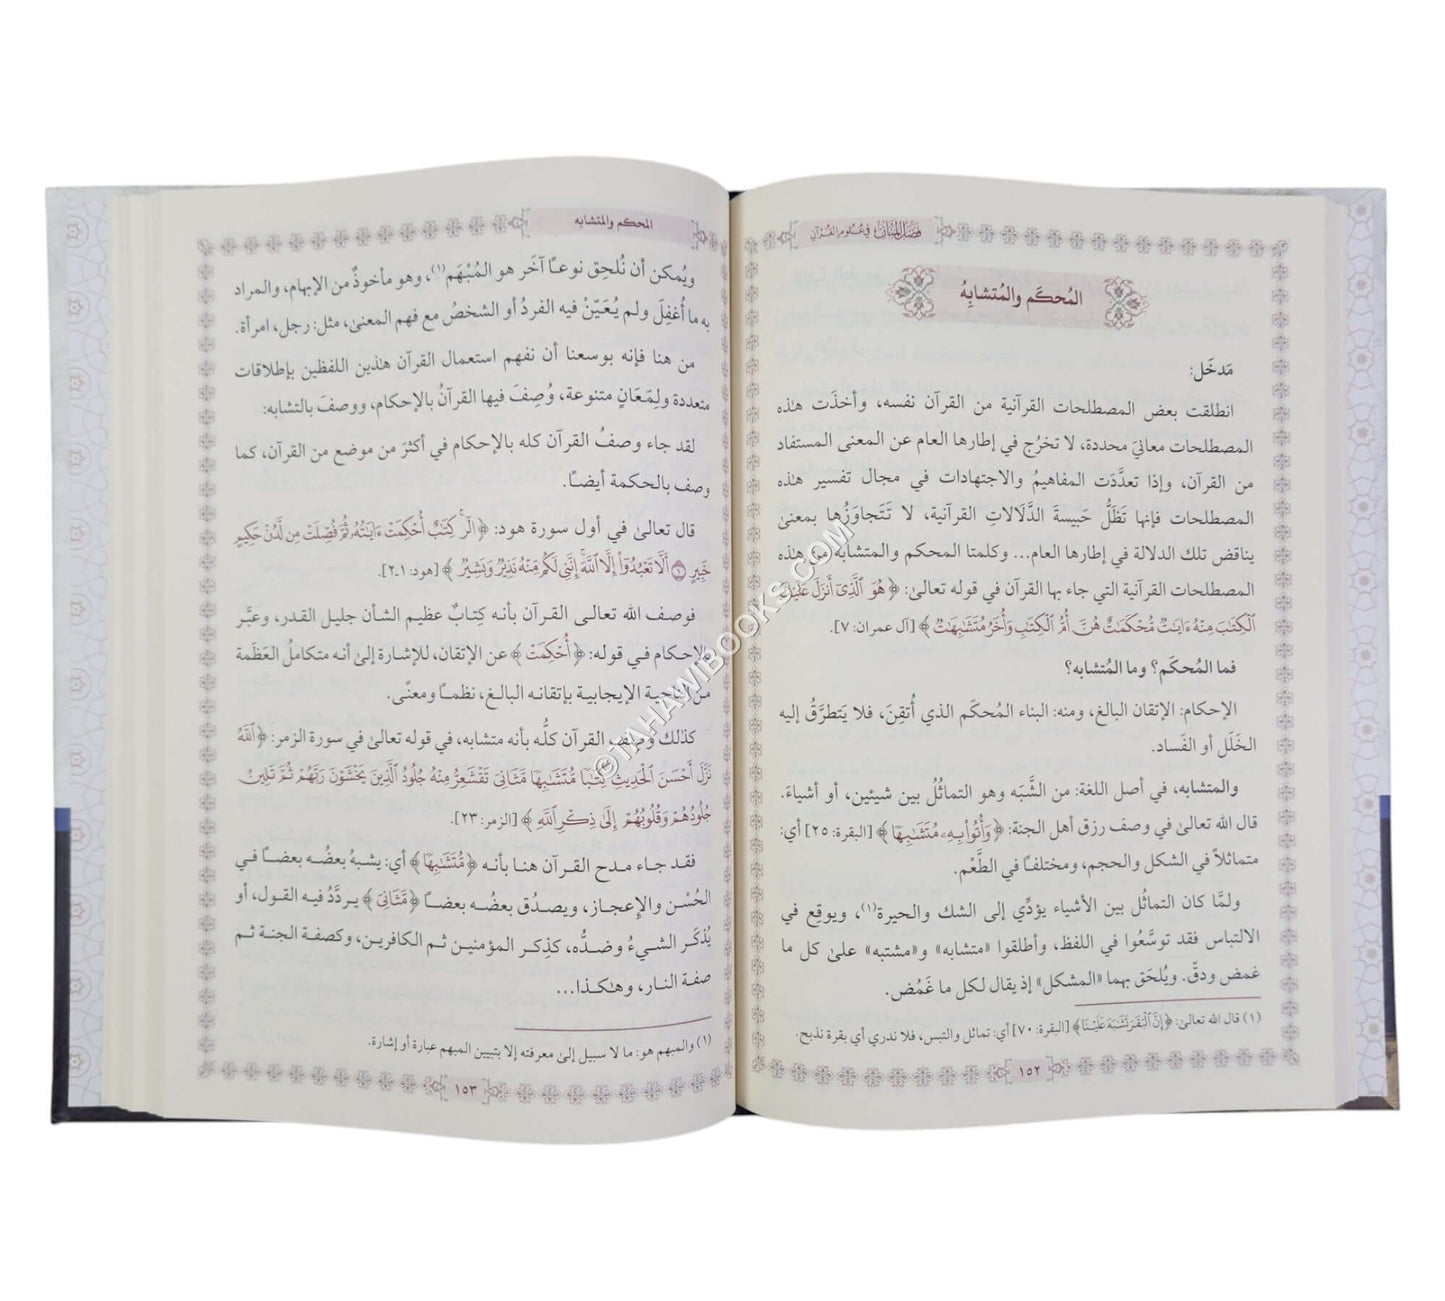 فضل المنان في علوم القرآن
المُحكَم والمُتشابِهُ
مَدخَل:
انطلقت بعض المصطلحات القرآنية من القرآن نفسه، وأخذَت هذه
المصطلحات معانيَ محددة، لا تخرُج في إطارها العام عن المعنى المستفاد
من القرآن، وإذا تعدَّدَت المفاهيمُ والاجتهادات في مجال تفسير هذه
المصطلحات فإنها تَظَلُّ حَبيسةَ الدَّلالاتِ القرآنية، لا تَتَجاوَزُها بمعنىٰ
يناقض تلك الدلالة في إطارها العام... وكلمتا المحكم والمتشابه من هذه
المصطلحات القرآنية التي جاء بها القرآن في قوله تعالىٰ: ﴿هُوَ ٱلَّذِىٓ أَنزَلَ عَلَيْكَ
ٱلْكِتَٰبَ مِنْهُ ءَايَٰتٌ مُّحْكَمَٰتٌ هُنَّ أُمُّ ٱلْكِتَٰبِ وَأُخَرُ مُتَشَٰبِهَٰتٌ﴾ [آل عمران: ٧].
فما المُحكَم؟ وما المُتشابه؟
الإحكام: الإتقان البالغ، ومنه: البناء المُحكَم الذي أُتقِنَ، فلا يَتطرَّقُ إليه
الخَلَل أو الفَساد.
والمتشابه، في أصل اللغة: من الشَّبَه وهو التماثُلُ بين شيئين، أو أشياءَ.
قال الله تعالىٰ في وصف رزق أهل الجنة: ﴿وَأُتُوا۟ بِهِۦ مُتَشَٰبِهًا﴾ [البقرة: ٢٥] أي:
متماثلاً في الشكل والحجم، ومختلفًا في الطَّعْم.
ولمَّا كان التماثُل بين الأشياء يؤدِّي إلى الشك والحيرة(١)، ويوقِع في
الالتباس فقد توسَّعُوا في اللفظ، وأطلقوا «متشابه» و«مشتبه» علىٰ كل ما
غمض ودقّ. ويُلحَق بهما «المشكل» إذ يقال لكل ما غَمُض.
(١) قال الله تعالىٰ: ﴿إِنَّ ٱلْبَقَرَ تَشَٰبَهَ عَلَيْنَا﴾ [البقرة: ٧٠] أي: تماثل والتبس، فلا ندري أي بقرة نذبح.
١٥٢
المحكم والمتشابه
ويُمكن أن نُلحِق نوعًا آخَر هو المُبْهَم(١)، وهو مأخوذٌ من الإبهام، والمراد
به ما أُغفِلَ ولم يُعَيَّنْ فيه الفردُ أو الشخصُ مع فهم المعنىٰ، مثل: رجل، امرأة.
من هنا فإنه بوسعنا أن نفهم استعمال القرآن هذين اللفظين بإطلاقات
متعددة ولِمَعَانٍ متنوعة، وُصِفَ فيها القرآنُ بالإحكام، ووصفَ بالتشابه:
لقد جاء وصفُ القرآن كله بالإحكام في أكثرَ من موضع من القرآن، كما
وصف بالحكمة أيضًا.
قال تعالىٰ في أول سورة هود: ﴿الٓر ۚ كِتَٰبٌ أُحْكِمَتْ ءَايَٰتُهُۥ ثُمَّ فُصِّلَتْ مِن لَّدُنْ حَكِيمٍ
خَبِيرٍ ١ أَلَّا تَعْبُدُوٓا۟ إِلَّا ٱللَّهَ ۚ إِنَّنِى لَكُم مِّنْهُ نَذِيرٌ وَبَشِيرٌ﴾ [هود: ١ـ٢].
فوصف الله تعالى القرآن بأنه كِتابٌ عظيم الشأن جليل القدر، وعبَّر
بالإحكام في قوله: ﴿أُحْكِمَتْ﴾ عن الإتقان، للإشارة إلىٰ أنه متكاملُ العَظَمة
من الإيجابية بإتقانه البالغ، نظمًا ومعنًى.
كذلك وصف القرآن كلُّه بأنه متشابه، في قوله تعالىٰ في سورة الزمر: ﴿ٱللَّهُ
نَزَّلَ أَحْسَنَ ٱلْحَدِيثِ كِتَٰبًا مُّتَشَٰبِهًا مَّثَانِىَ تَقْشَعِرُّ مِنْهُ جُلُودُ ٱلَّذِينَ يَخْشَوْنَ رَبَّهُمْ ثُمَّ تَلِينُ
جُلُودُهُمْ وَقُلُوبُهُمْ إِلَىٰ ذِكْرِ ٱللَّهِ﴾ [الزمر: ٢٣].
فقد جاء مدح القرآن هنا بأنه ﴿مُّتَشَٰبِهًا﴾ أي: يشبهُ بعضُه بعضًا في
الحُسْن والإعجاز، ويصدُق بعضُه بعضًا ﴿مَّثَانِىَ﴾ يردَّدُ فيه القول، أو
يُذكَر الشيءُ وضدُّه، كذِكر المؤمنين ثم الكافرين، وكصفة الجنة ثم
صفة النار، وهٰكذا...
(١) والمبهم هو: ما لا سبيل إلىٰ معرفته إلا بتبيين المبهم عبارة أو إشارة.
١٥٣
© TAHAWIBOOKS.COM